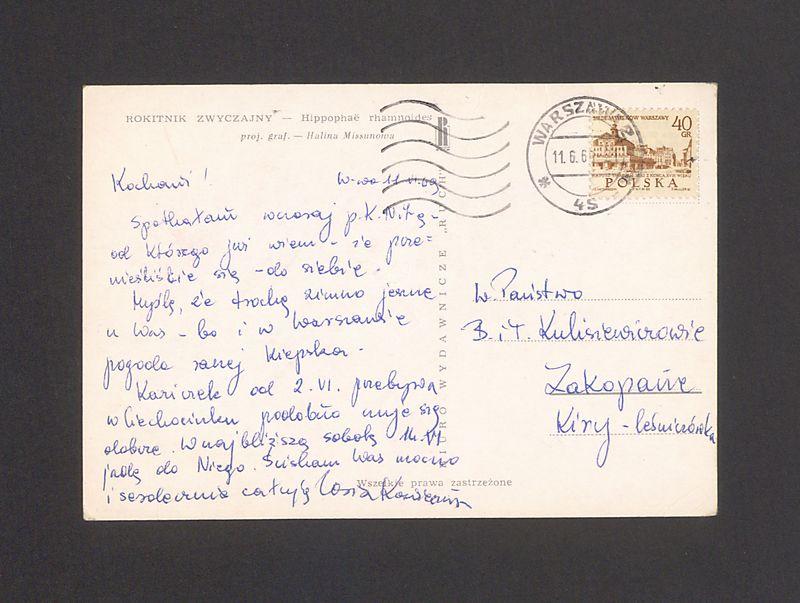 ROKITNIK ZWYCZAJNY — Hippophaë rhamnoides
proj. graf. — Halina Missunowa
WARSZAWA 2
11.6.6
4S
700 LAT WARSZAWY
40
GR
POLSKA
Kochani! W-wa 11.VI.69
Spotkałam wczoraj p. K. Nitę -
od którego już wiem - że prze=
nieśliście się - do siebie.
Myślę, że trochę zimno jeszcze
u Was - bo i w Warszawie
pogoda raczej kiepska.
Kaziczek od 2.VI. przebywa
w Ciechocinku podobno czuje się
dobrze. W najbliższą sobotę 14.VI
jadę do Niego. Ściskam Was mocno
i serdecznie całuję Zosia
BIURO WYDAWNICZE „RUCH"
W. Państwo
B. i T. Kulisiewiczowie
Zakopane
Kiry - leśniczówka
Wszelkie prawa zastrzeżone